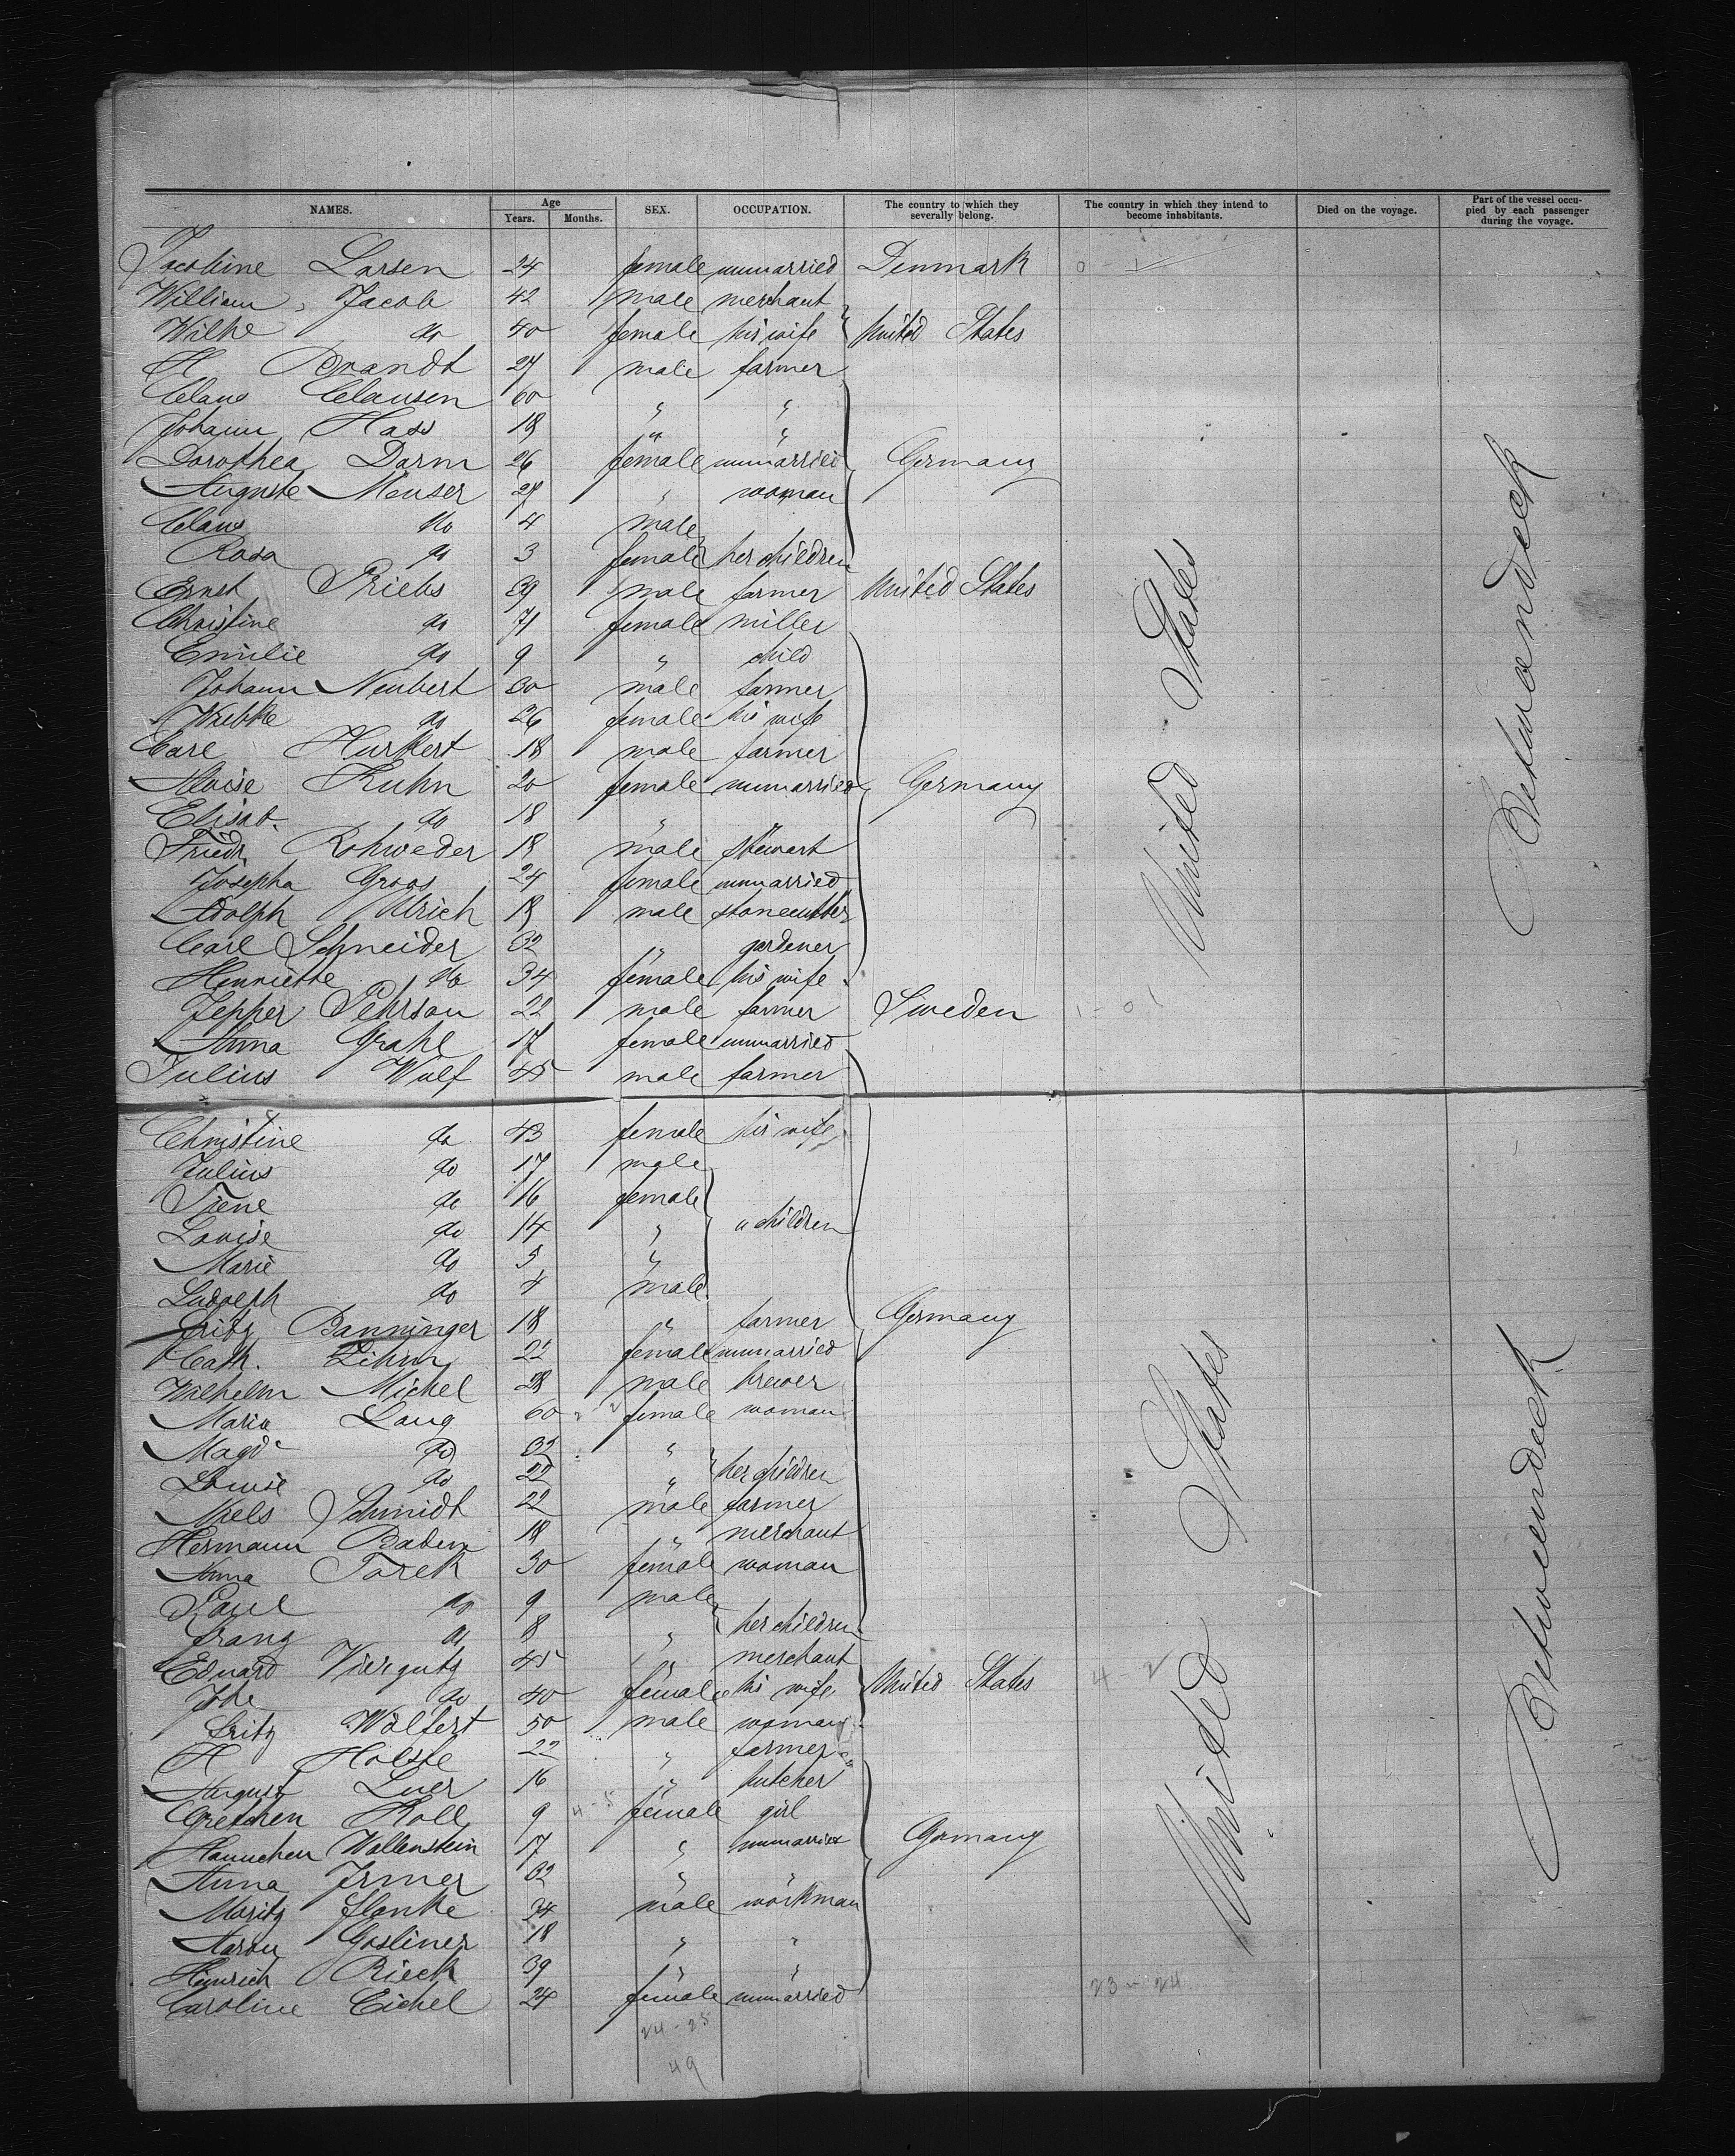 NAMES. Age Years. Months. SEX. OCCUPATION. The country to which they severally belong. The country in which they intend to become inhabitants. Died on the voyage. Part of the vessel occupied by each passenger during the voyage.
Jacobine Larsen 24 female unmarried Denmark 0 1
William Jacob 42 male merchant
Wilhe do 40 female his wife United States
H Brandt 27 male farmer
Claus Clausen 60 " "
Johann Hass 18 " "
Dorothea Dorm 26 female unmarried Germany
Auguste Meuser 27 " woman
Claus do 4 male
Rosa do 3 female her children
Ernst Priebs 39 male farmer United States
Christine do 71 female miller
Emilie do 9 " child
Johann Neubert 30 male farmer
Wiebke do 26 female his wife
Carl Hurkert 18 male farmer
Aloise Kuhn 20 female unmarried Germany
Elisab. do 18 "
Friedr. Rohweder 18 male stewart
Josepha Groos 24 female unmarried
Adolph Ulrich 18 male stonecutter
Carl Schneider 32 " gardener
Henriette do 34 female his wife
Jepper Pehrson 22 male farmer Sweden 1 - 0
Anna Grahl 17 female unmarried
Julius Wulf 45 male farmer
United States
Betweendeck
Christine do 43 female his wife
Julius do 17 male
Trene do 16 female
Louise do 14 " " children
Marie do 5 "
Ludolph do 4 male
Fritz Banninger 18 " farmer Germany
Cath. Lihm 22 female unmarried
Wilhelm Michel 28 male brewer
Maria Lang 60 female woman
Magd. do 32 "
Louise do 22 " her children
Niels Schmidt 22 male farmer
Hermann Baden 18 " merchant
Anna Torek 30 female woman
Paul do 9 male
Franz do 8 " her children
Eduard Viergutz 45 " merchant
Ide do 40 female his wife United States 4 - 2
Fritz Wolfert 50 male woman
H Holste 22 " farmer
August Luer 16 " butcher
Gretchen Koll 9 4-5 female girl
Hannchen Wallenstein 17 " unmarried Germany
Anna Irmer 32 " "
Moritz Hanke 24 male workman
Aaron Gosliner 18 " "
Heinrich Rieck 39 " "
Caroline Eichel 24 female unmarried
United States
Betweendeck
23 - 24
24 - 25
49